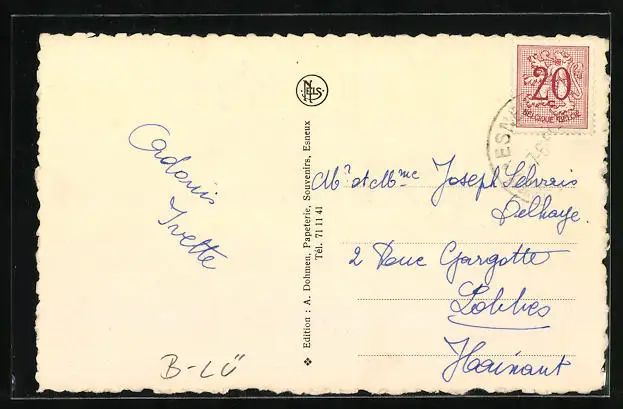 NELS
20 c
BELGIQUE-BELGIE
ESN
Adonis
Yvette
Mr et Mme Joseph
Delhaye.
2 Rue Gargotte
Lobbes
Hainaut
❖ Edition : A. Dohmen, Papeterie, Souvenirs, Esneux
Tél. 71 11 41
B-LÜ